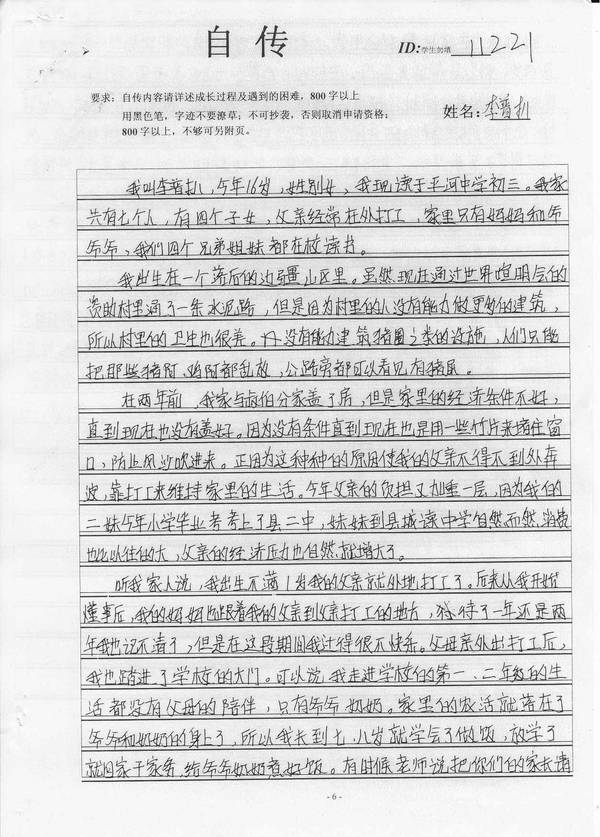 自传
ID:学生勿填 11221
要求：自传内容请详述成长过程及遇到的困难，800字以上
用黑色笔，字迹不要潦草；不可抄袭，否则取消申请资格；
800字以上，不够可另附页。
姓名：李普扒
我叫李普扒，今年16岁，姓别女，我现读于平河中学初三。我家
共有七个人，有四个子女，父亲经常在外打工，家里只有妈妈和爷
爷爷，我们四个兄弟姐妹都在校读书。
我出生在一个落后的边疆山区里。虽然现在通过世界宣明会的
资助村里通了一条水泥路，但是因为村里的人没有能力做更多的建筑，
所以村里的卫生也很差。没有能力建筑猪圈之类的设施，人们只能
把那些猪阿、鸡阿都乱放，公路旁都可以看见有猪屎。
在两年前，我家与叔伯分家盖了房，但是家里的经济条件不好，
直到现在也没有盖好。因为没有条件直到现在也是用一些竹片来堵住窗
口，防止风沙吹进来。正因为这种种的原因使我的父亲不得不到外奔
波，靠打工来维持家里的生活。今年父亲的负担又加重一层，因为我的
二妹今年小学毕业考考上了县二中，妹妹到县城读中学自然而然消费
也比以往的大，父亲的经济压力也自然就增大了。
听我家人说，我出生不满1岁我的父亲就外地打工了。后来从我开始
懂事后，我的妈妈也跟着我的父亲到父亲打工的地方，待了一年还是两
年我也记不清了，但是在这段期间我过得很不快乐。父母亲外出打工后，
我也踏进了学校的大门。可以说，我走进学校的第一、二年级的生
活都没有父母的陪伴，只有爷爷奶奶。家里的农活就落在了
爷爷和奶奶的身上了，所以我未到七、八岁就学会了做饭，放学了
就回家干家务，给爷爷奶奶煮好饭。有时候老师说把你们的家长请
-6-